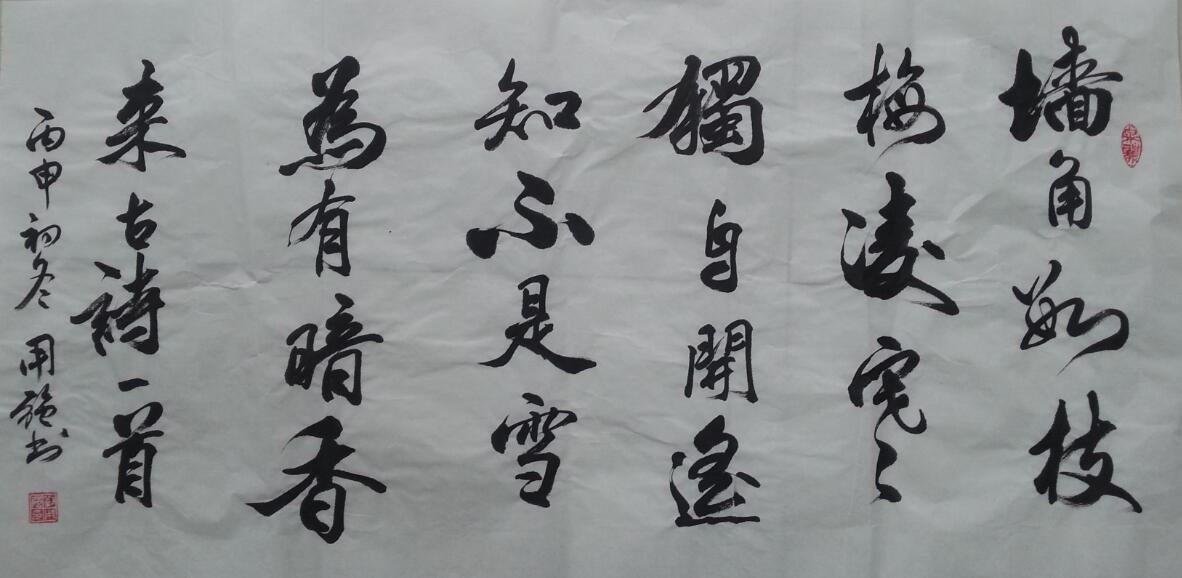 墙角数枝
梅凌寒
獨自開遙
知不是雪
為有暗香
来古詩一首
丙申初冬
用強书